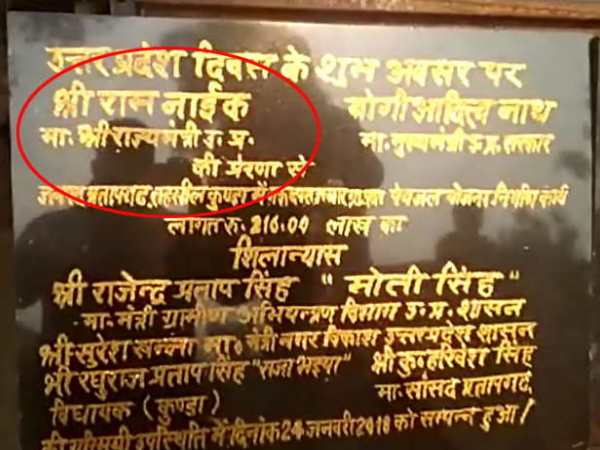 उत्तर प्रदेश दिवस के शुभ अवसर पर
श्री राम नाईक योगी आदित्य नाथ
मा. श्री राज्यमंत्री उ.प्र. मा. मुख्यमंत्री उ.प्र. सरकार
की प्रेरणा से
जनपद प्रतापगढ़ तहसील कुण्डा में पेयजल योजना निर्माण कार्य
लागत रु. 216.00 लाख का
शिलान्यास
श्री राजेन्द्र प्रताप सिंह "मोती सिंह"
मा. मंत्री ग्रामीण अभियन्त्रण विभाग उ.प्र. शासन
श्री सुरेश खन्ना मा० मंत्री नगर विकास उत्तर प्रदेश शासन
श्री रघुराज प्रताप सिंह "राजा भइया" श्री कु० हरिवंश सिंह
विधायक (कुण्डा) मा. सांसद प्रतापगढ़
की उपस्थिति में दिनांक 24 जनवरी 2018 को सम्पन्न हुआ।